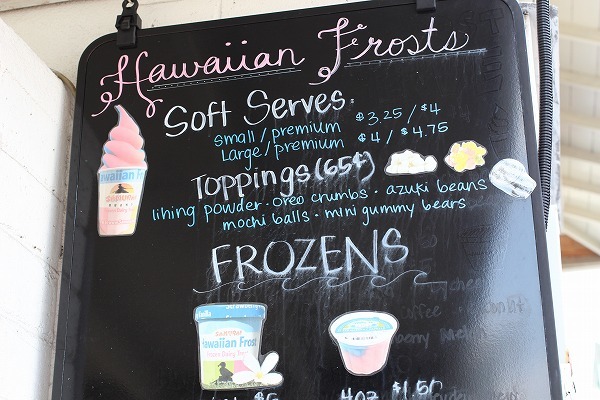 Hawaiian Frosts
Soft Serves:
small/premium $3.25/$4
Large/premium $4/$4.75
Toppings (65¢)
lihing powder · oreo crumbs · azuki beans
mochi balls · mini gummy bears
FROZENS
Hawaiian Frost
4oz $1.50